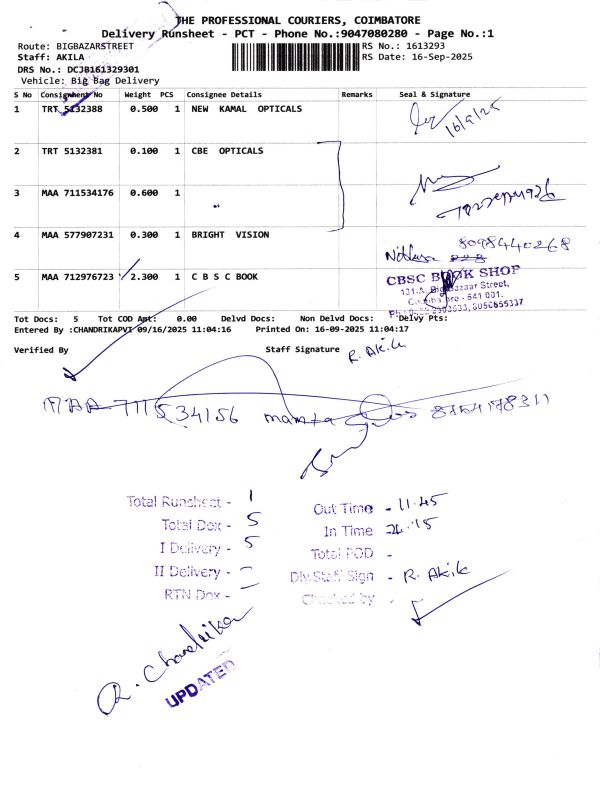 THE PROFESSIONAL COURIERS, COIMBATORE
Delivery Runsheet - PCT - Phone No.:9047080280 - Page No.:1
Route: BIGBAZARSTREET
RS No.: 1613293
Staff: AKILA
RS Date: 16-Sep-2025
DRS No.: DCJB161329301
Vehicle: Big Bag Delivery
S No Consignment No Weight PCS Consignee Details Remarks Seal & Signature
1 TRT 5132388 0.500 1 NEW KAMAL OPTICALS
16/9/25
2 TRT 5132381 0.100 1 CBE OPTICALS
3 MAA 711534176 0.600 1
4 MAA 577907231 0.300 1 BRIGHT VISION
8098440268
5 MAA 712976723 2.300 1 C B S C BOOK
CBSC BOOK SHOP
131-A, Big Bazaar Street,
Coimbatore - 641 001.
Tot Docs: 5 Tot COD Amt: 0.00 Delvd Docs: Non Delvd Docs: Delvy Pts:
Entered By :CHANDRIKAPVI 09/16/2025 11:04:16 Printed On: 16-09-2025 11:04:17
Verified By Staff Signature R. Akila
MAA 711534156 mamta
Total Runsheet - 1
Out Time - 11.45
Total Dox - 5
In Time
I Delivery - 5
Total POD -
II Delivery - -
Dly.Staff Sign - R. Akila
RTN Dox - -
Checked by -
R. Chandrika
UPDATED